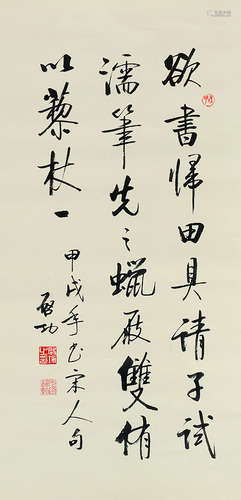 欲書歸田具請子試
濡筆先之蠟屐雙侑
以藜杖一
甲戌年書宋人句
啟功